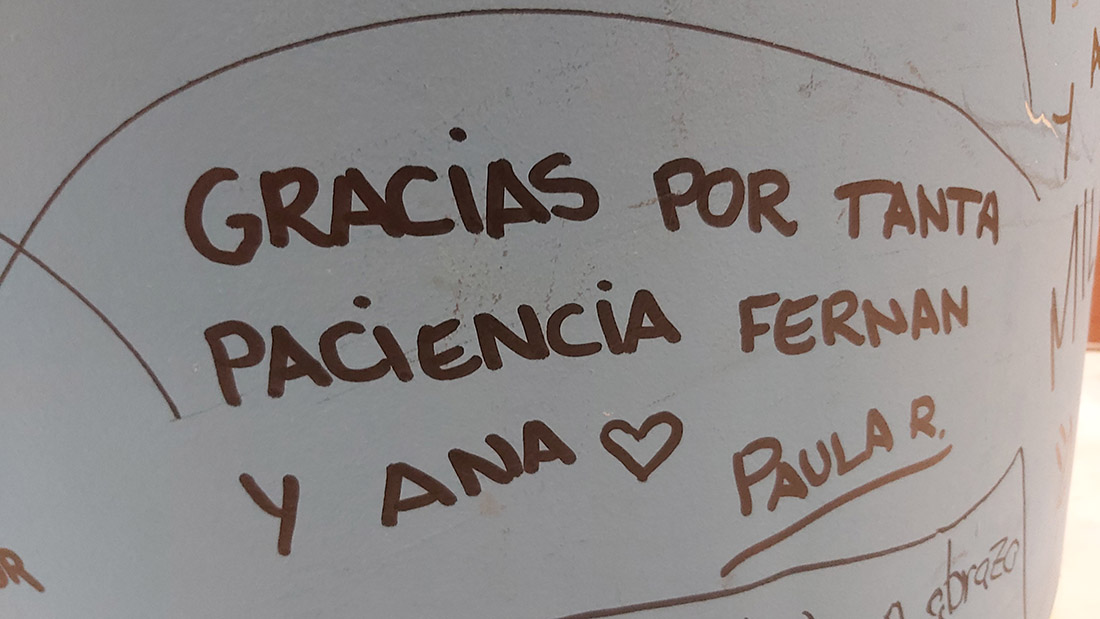 GRACIAS POR TANTA
PACIENCIA FERNAN
Y ANA ♡ PAULA R.
abrazo